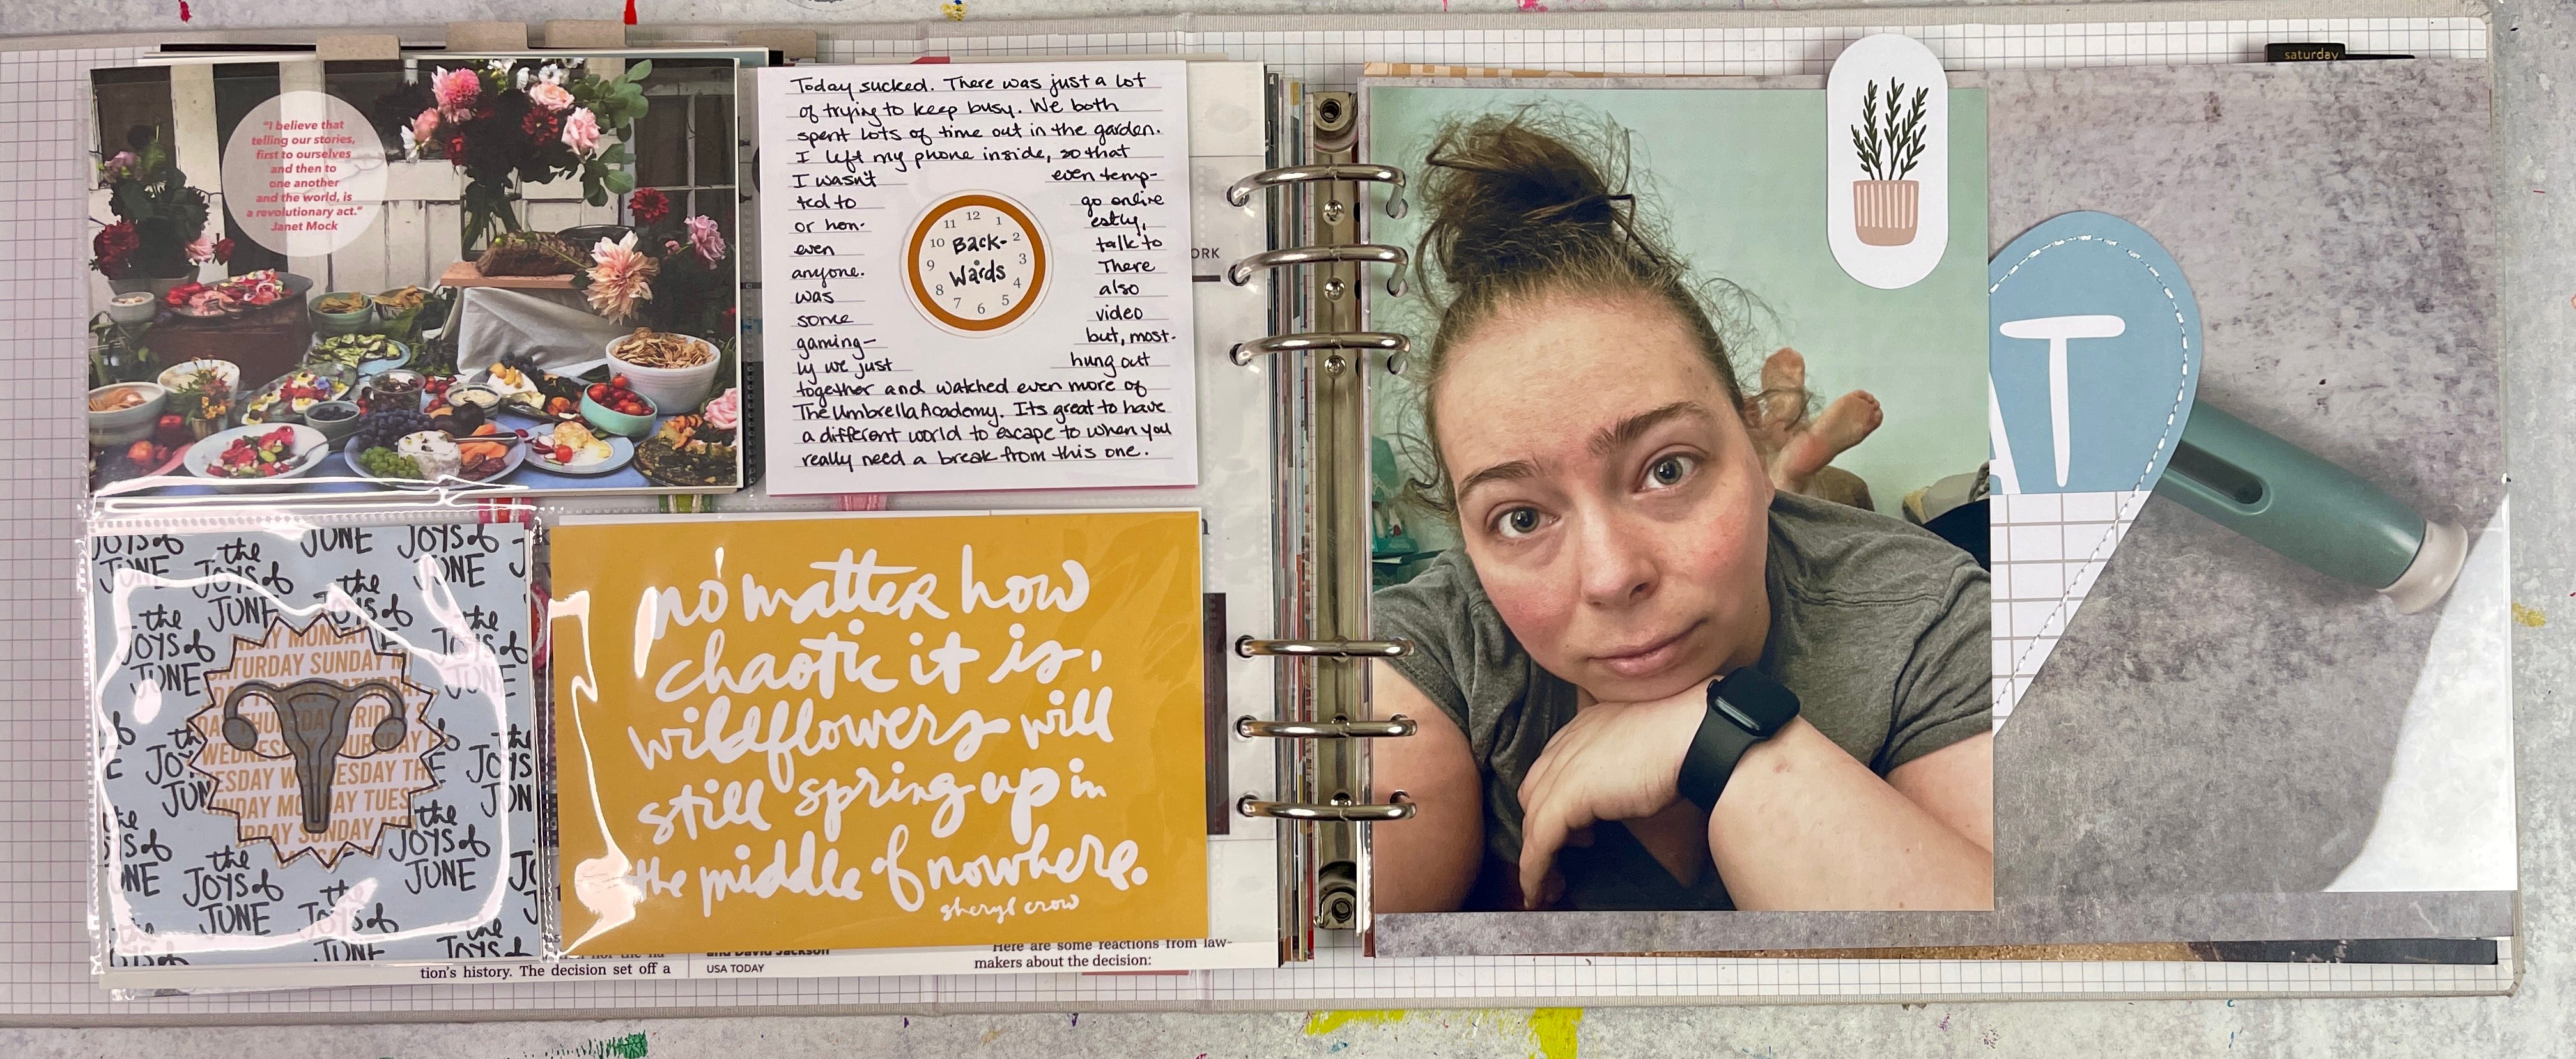 saturday
"I believe that
telling our stories,
first to ourselves
and then to
one another
and the world, is
a revolutionary act."
Janet Mock
Today sucked. There was just a lot
of trying to keep busy. We both
spent lots of time out in the garden.
I left my phone inside, so that
I wasn't even temp-
ted to go online
or hon- estly,
even talk to
anyone. There
was also
some video
gaming- but, most-
ly we just hung out
together and watched even more of
The Umbrella Academy. Its great to have
a different world to escape to when you
really need a break from this one.
11 12 1
10 Back- 2
9 wards 3
8 4
7 6 5
ORK
AT
JOYS of the JUNE JOYS of
JUNE JOYS of the JUNE
the JUNE JOYS of the
JOYS of JOYS of
JUNE JUNE
DAY MONDAY
TURDAY SUNDAY M
SATURDAY
DAY THURSDAY FRIDAY S
WEDNESDAY THURSDAY F
ESDAY WEDNESDAY TH
NDAY MONDAY TUES
RDAY SUNDAY MO
the the
JOYS of JOYS of
JUNE the JUNE
JOYS of the
JUNE JOYS of
JUNE
no matter how
chaotic it is,
wildflowers will
still spring up in
the middle of nowhere.
sheryl crow
tion's history. The decision set off a
and David Jackson
USA TODAY
Here are some reactions from law-
makers about the decision: